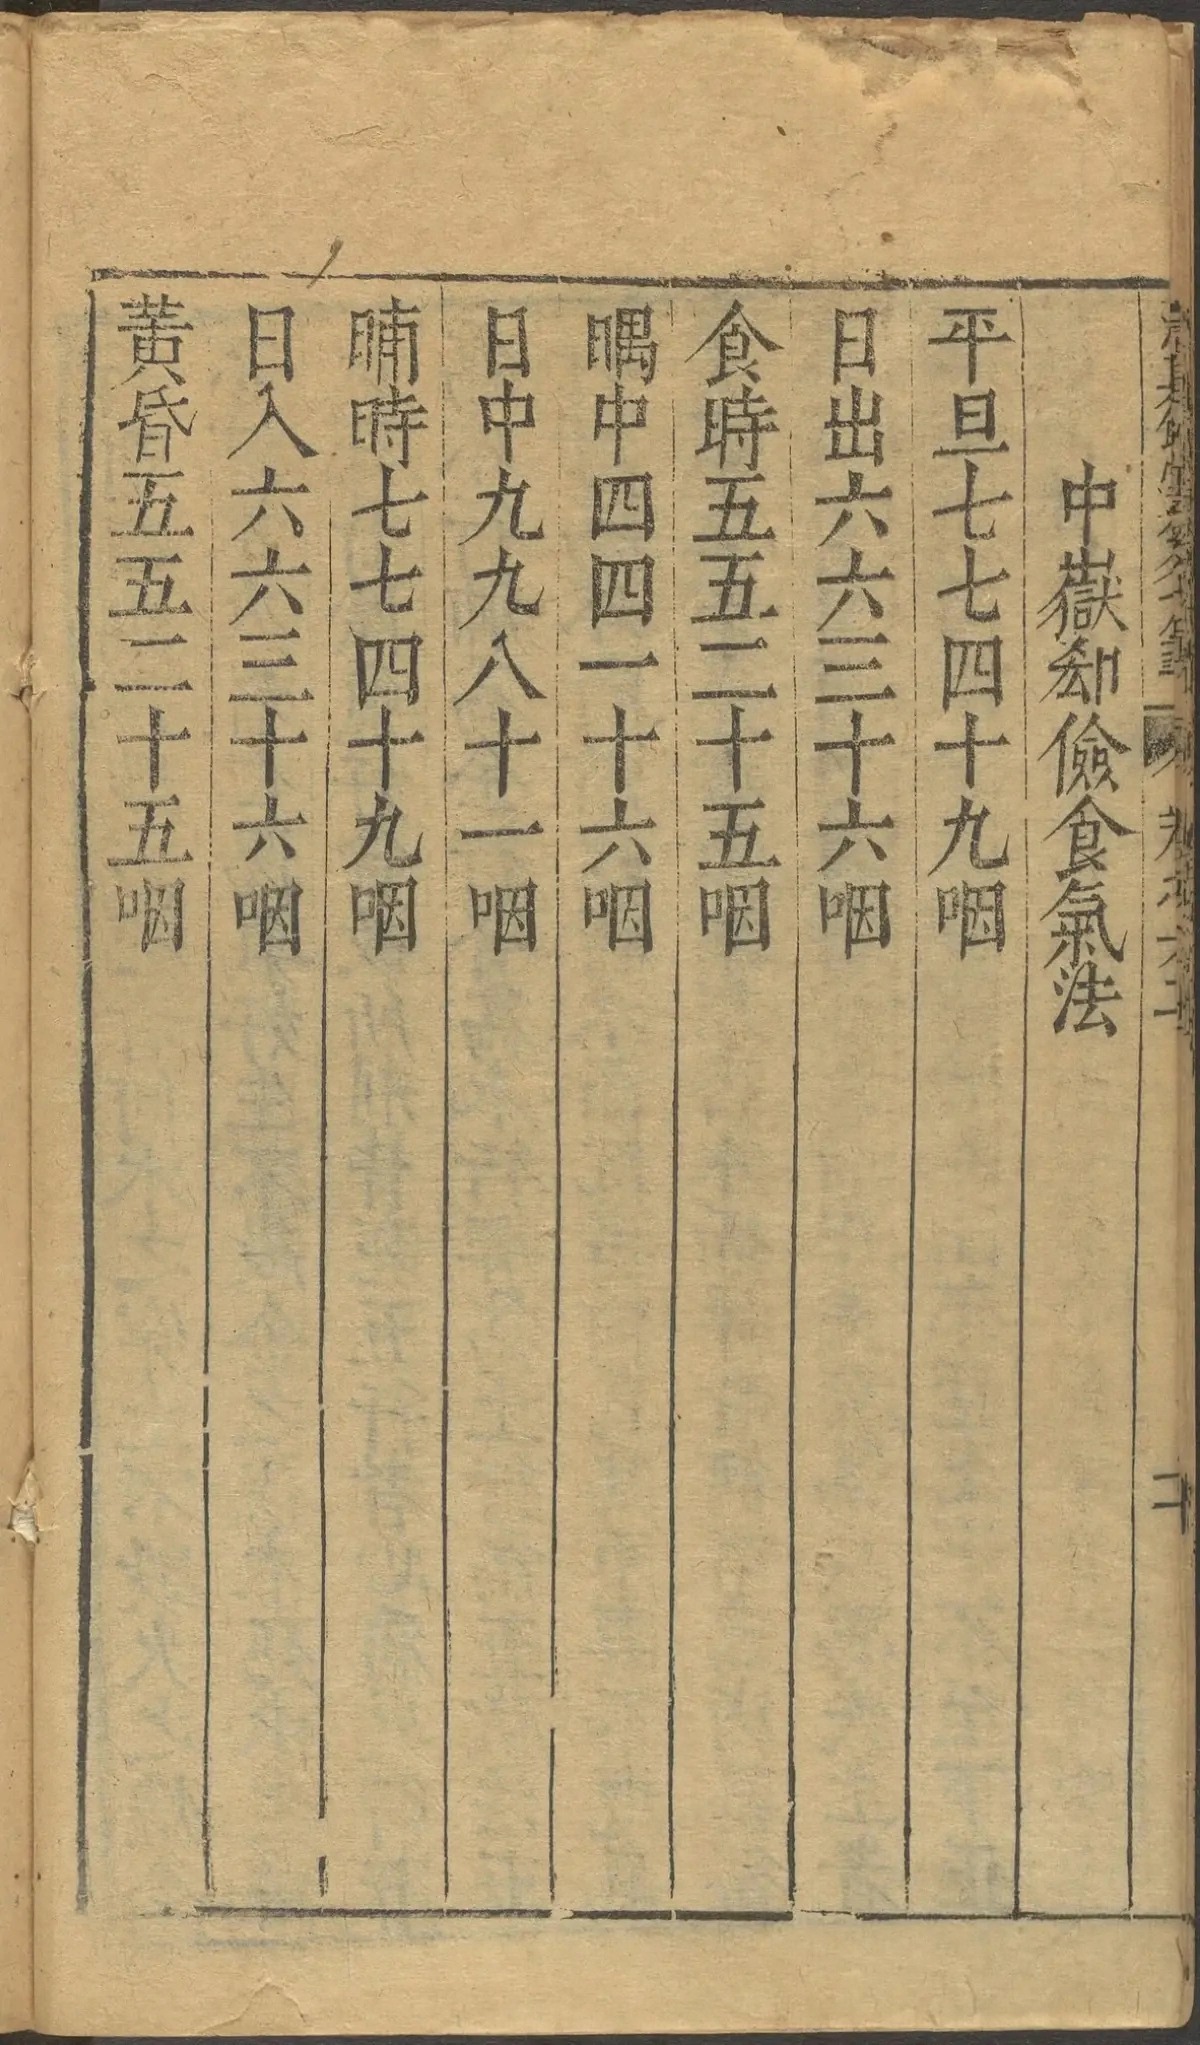 中嶽郄儉食氣法
平旦七七四十九咽
日出六六三十六咽
食時五五二十五咽
暘中四四一十六咽
日中九九八十一咽
晡時七七四十九咽
日入六六三十六咽
黃昏五五二十五咽
二